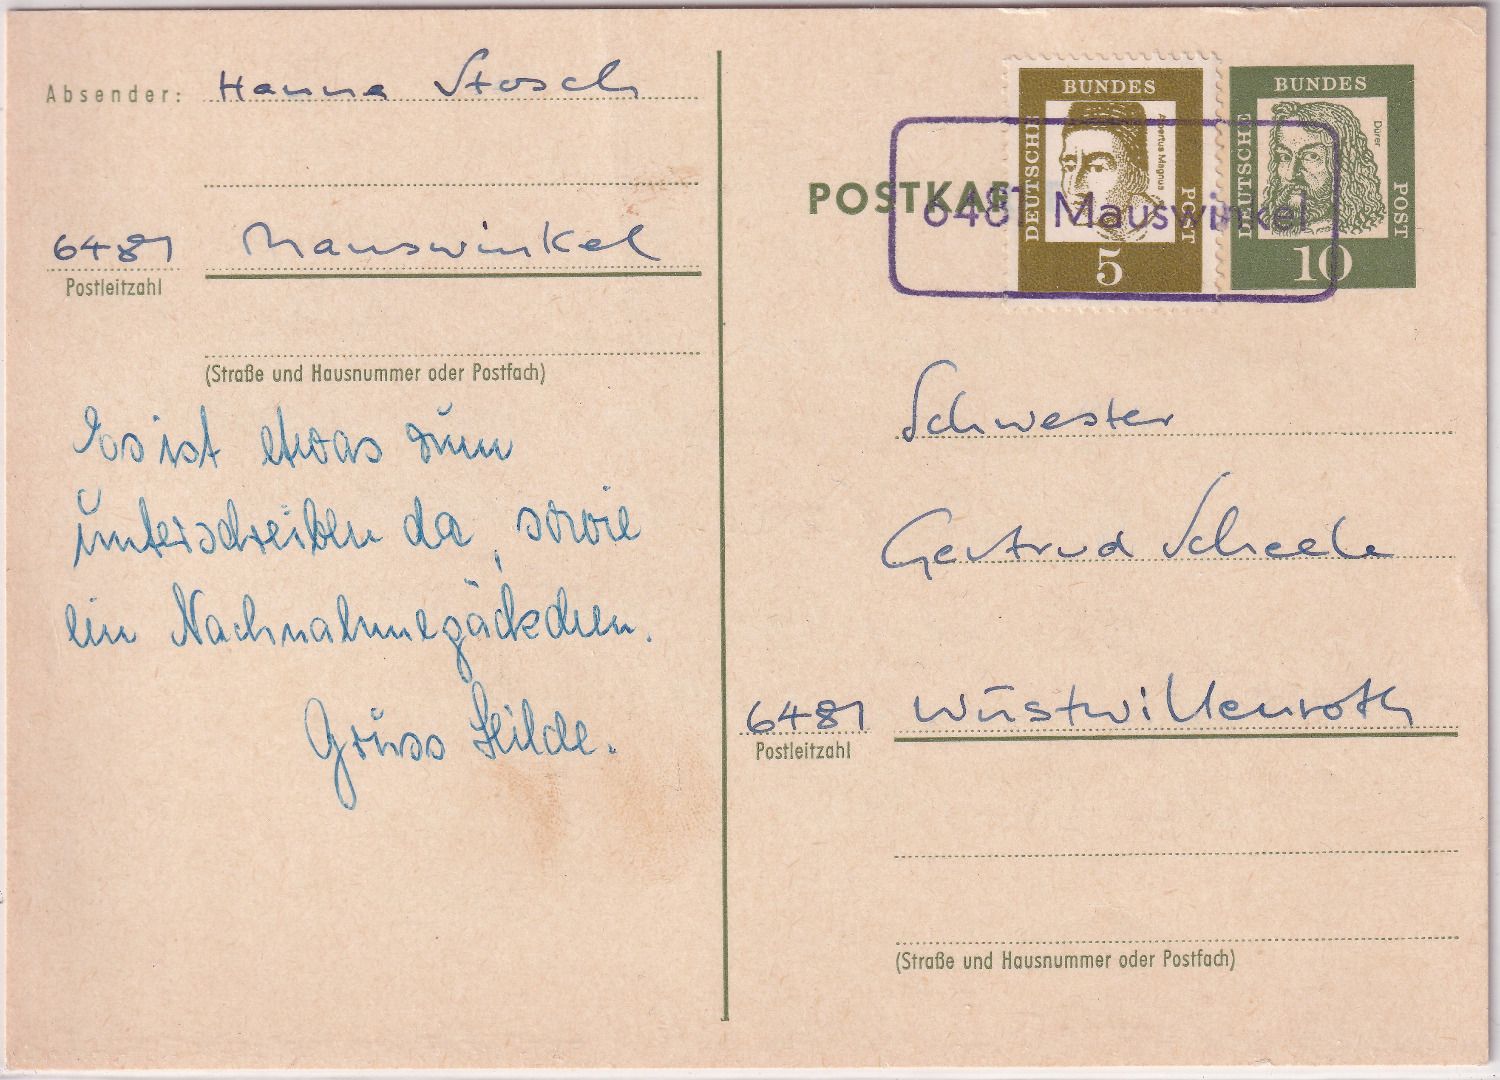 Absender: Hanna Stosch
6481 Mauswinkel
Postleitzahl
(Straße und Hausnummer oder Postfach)
Es ist etwas zum
unterschreiben da, sowie
ein Nachnahmegäckchen.
Grüss Hilde.
POSTKAR
6481 Mauswinkel
DEUTSCHE BUNDES POST
Albertus Magnus
5
DEUTSCHE BUNDES POST
Dürer
10
Schwester
Gertrud Scheele
6481 Wüstwillenroth
Postleitzahl
(Straße und Hausnummer oder Postfach)